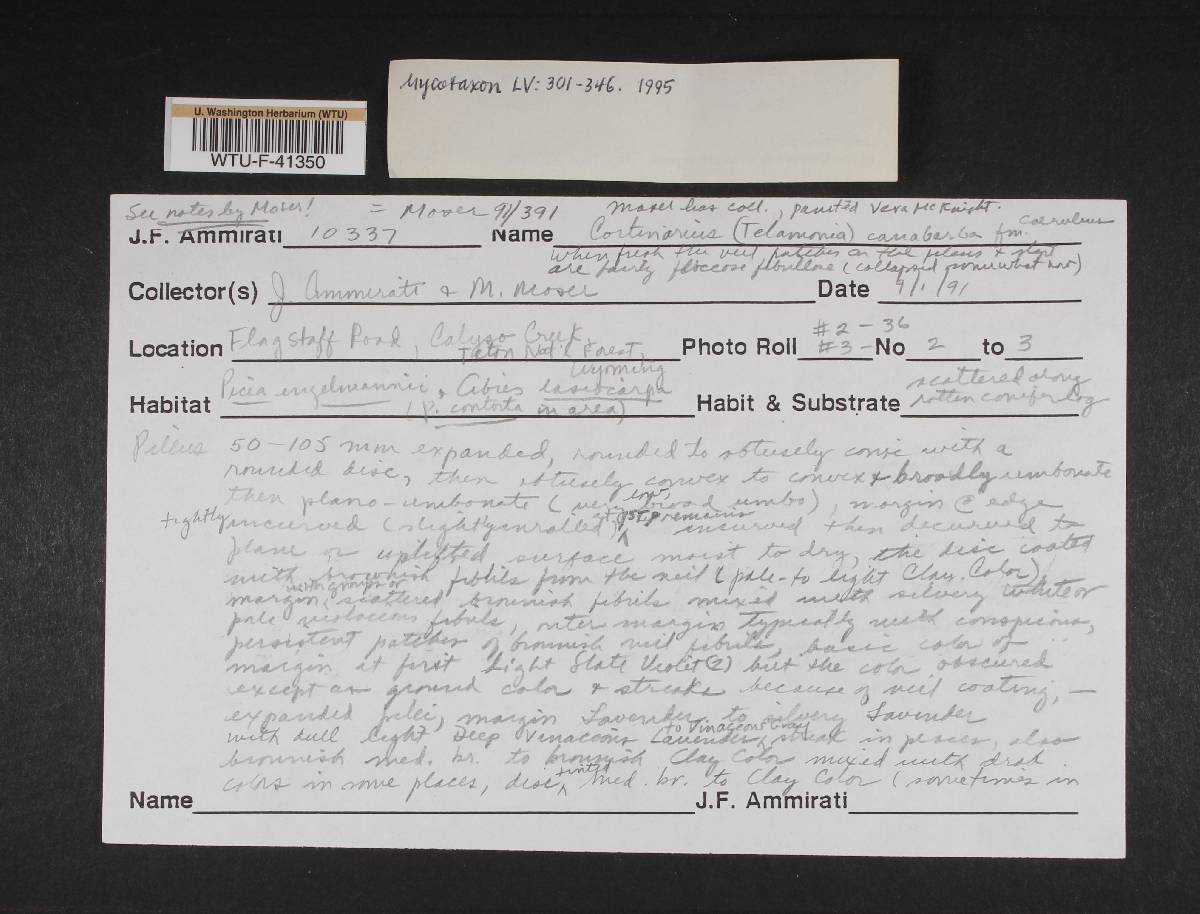 Mycotaxon LV: 301-346. 1995
U. Washington Herbarium (WTU)
WTU-F-41350
See notes by Moser! = Moser 91/391 Moser has coll., painted Vera McKnight.
J.F. Ammirati 10337 Name Cortinarius (Telamonia) canabarba fm. caeruleus
When fresh the veil patches on the pileus & stipe
are fairly floccose fibrillose (collapsed somewhat now)
Collector(s) J. Ammirati & M. Moser Date 9/1/91
Location Flagstaff Road, Calypso Creek,
Teton Nat'l Forest,
Wyoming
Photo Roll #2-36
#3- No 2 to 3
Habitat Picia engelmannii, Abies lasiocarpa
(P. contorta in area)
Habit & Substrate scattered along
rotten conifer log
Pileus 50-105 mm expanded, rounded to obtusely conic with a
rounded disc, then obtusely convex to convex & broadly umbonate
then plano-umbonate (very low, broad umbo), margin @ edge
tightly incurved (slightly inrolled) at first, remains incurved then decurved to
plane or uplifted, surface moist to dry, the disc coated
with brownish fibrils from the veil (pale-to light Clay Color)
margin, with groups or scattered brownish fibrils mixed with silvery white or
pale violaceous fibrils, outer margin typically with conspicuous,
persistent patches of brownish veil fibrils, basic color of
margin at first Light Slate Violet(2) but the color obscured
except as ground color & streaks because of veil coating, —
expanded pilei, margin Lavender to silvery Lavender
with dull light Deep Vinaceous Lavender to Vinaceous Gray streak in places, also
brownish med. br. to brownish Clay Color mixed with drab
colors in some places, disc, tinted med. br. to Clay Color (sometimes in
Name J.F. Ammirati